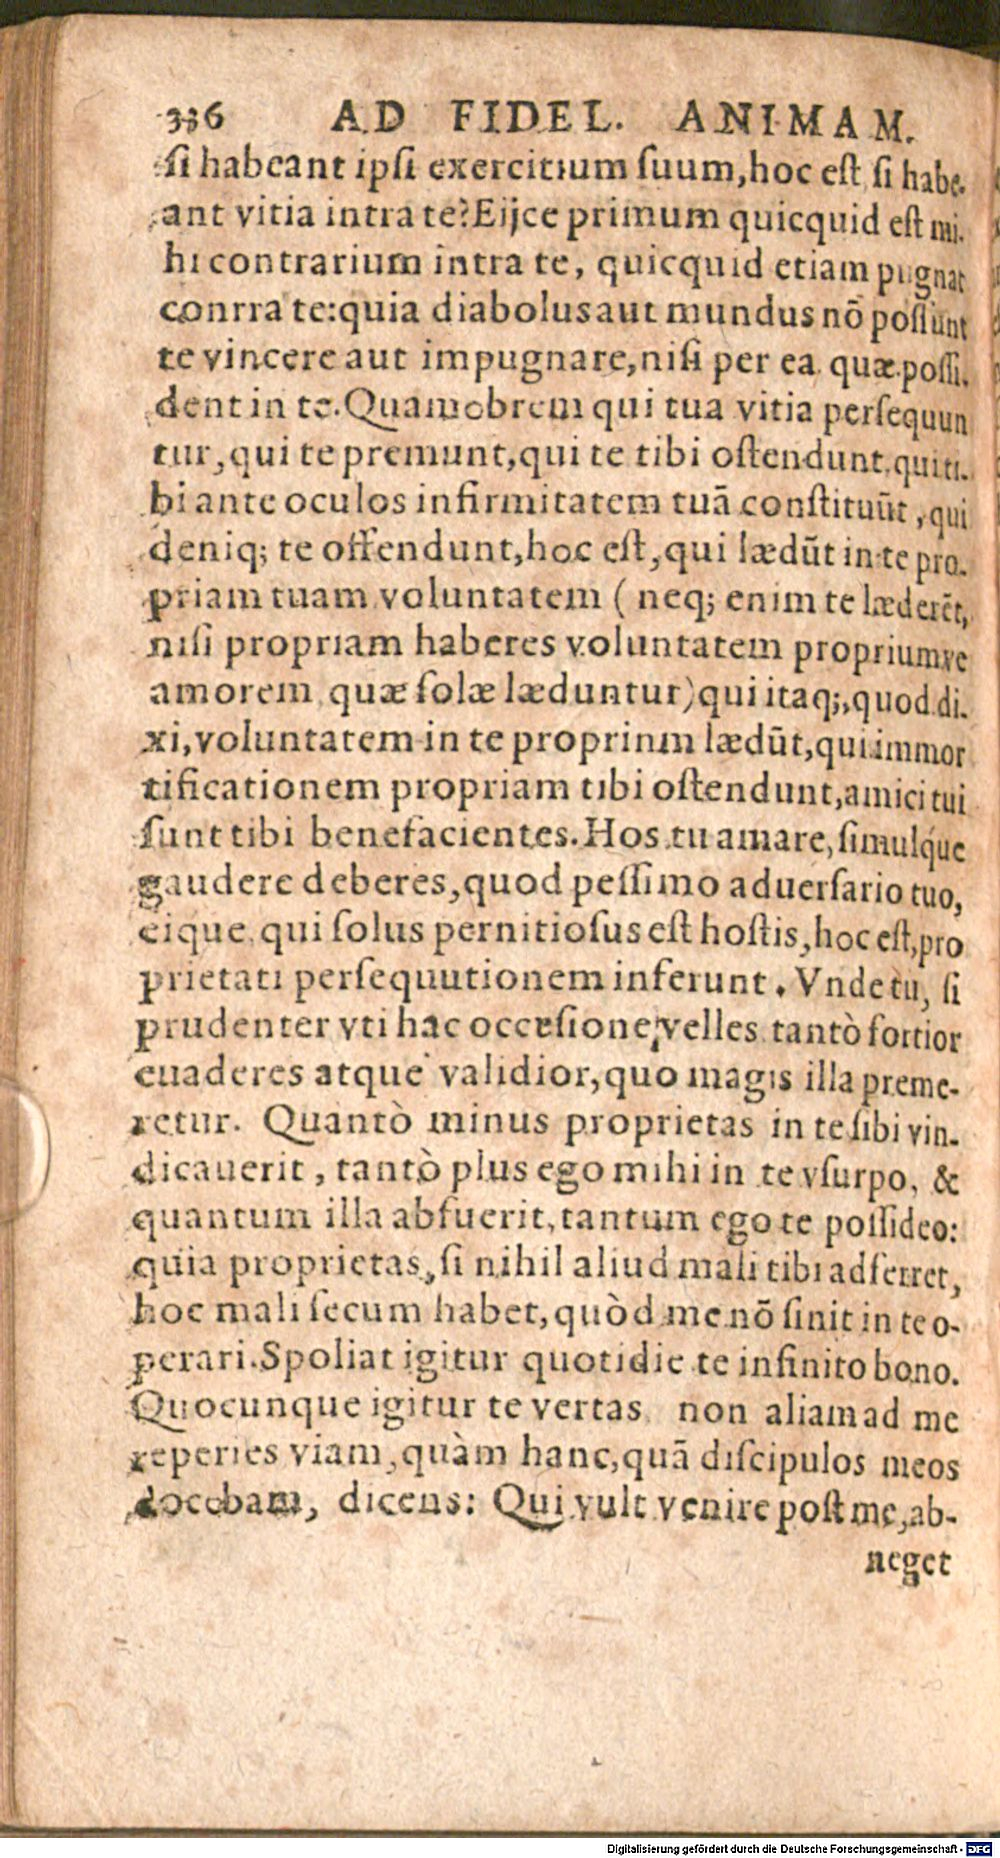 336 AD FIDEL. ANIMAM.
ſi habeant ipſi exercitium ſuum, hoc eſt ſi habe-
ant vitia intra te? Eijce primum quicquid eſt mi-
hi contrarium intra te, quicquid etiam pugnat
conrra te: quia diabolus aut mundus nõ poſſunt
te vincere aut impugnare, niſi per ea quæ poſſi-
dent in te. Quamobrem qui tua vitia perſequun
tur, qui te premunt, qui te tibi oſtendunt, qui ti-
bi ante oculos infirmitatem tuã conſtituũt, qui
deniq; te offendunt, hoc eſt, qui lædũt in te pro-
priam tuam voluntatem ( neq; enim te læderẽt,
niſi propriam haberes voluntatem propriumve
amorem quæ ſolæ læduntur) qui itaq;, quod di-
xi, voluntatem in te proprinm lædũt, qui immor
tificationem propriam tibi oſtendunt, amici tui
ſunt tibi benefacientes. Hos tu amare, ſimulq́ue
gaudere deberes, quod peſſimo aduerſario tuo,
eique qui ſolus pernitioſus eſt hoſtis, hoc eſt, pro
prietati perſequutionem inferunt. Vnde tu, ſi
prudenter vti hac occeſione velles tantò fortior
euaderes atque validior, quo magis illa preme-
retur. Quantò minus proprietas in te ſibi vin-
dicauerit, tantò plus ego mihi in te vſurpo, &
quantum illa abfuerit, tantum ego te poſſideo:
quia proprietas, ſi nihil aliud mali tibi adferret,
hoc mali ſecum habet, quòd me nõ ſinit in te o-
perari. Spoliat igitur quotidie te infinito bono.
Quocunque igitur te vertas non aliam ad me
reperies viam, quàm hanc, quã diſcipulos meos
docebam, dicens: Qui vult venire poſt me, ab-
neget
Digitalisierung gefördert durch die Deutsche Forschungsgemeinschaft - DFG